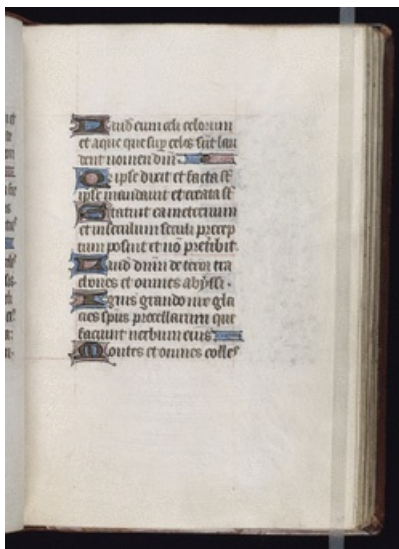 Laud eum celi celorum
et aque que sup celos sūt lau
dent nomen dn̄i.
Q̄r ipse dixit et facta st̄
ipse mandauit et creata st̄
Statuit ea in eternum
et in seculum seculi precep
tum posuit et nō preribit.
Laud dn̄m de terra dra
chones et omnes abyssi.
Ignis grando nix gla
cies sp̄us procellarum que
faciunt uerbum eius
Montes et omnes colles